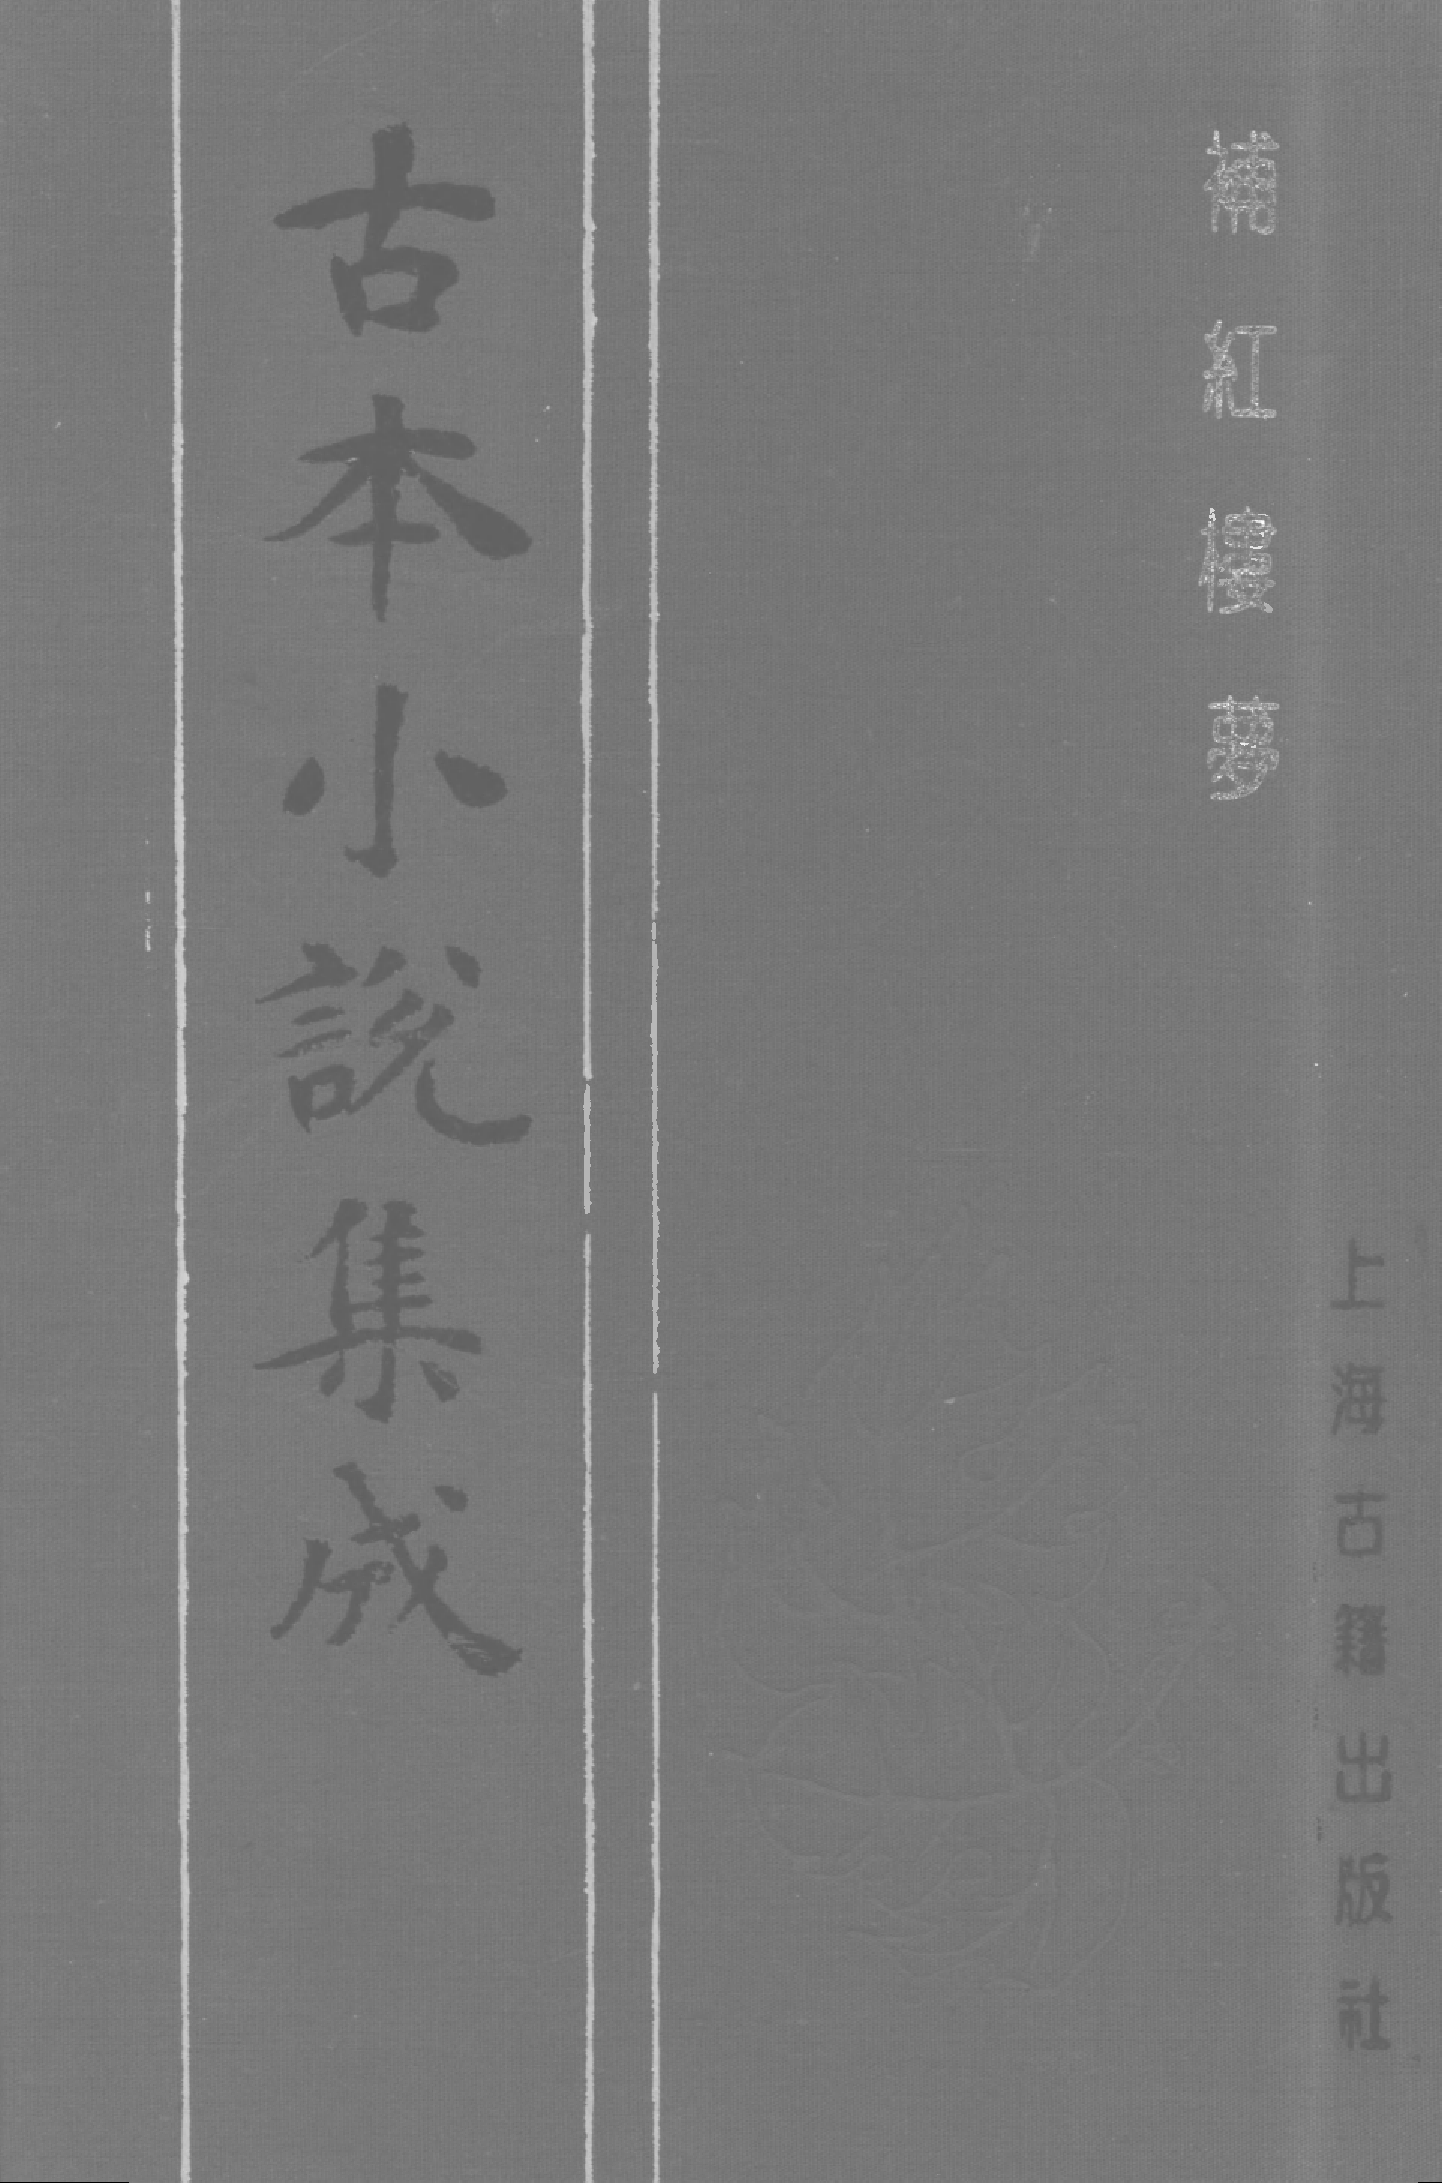 補紅樓夢
古本小說集成
上海古籍出版社